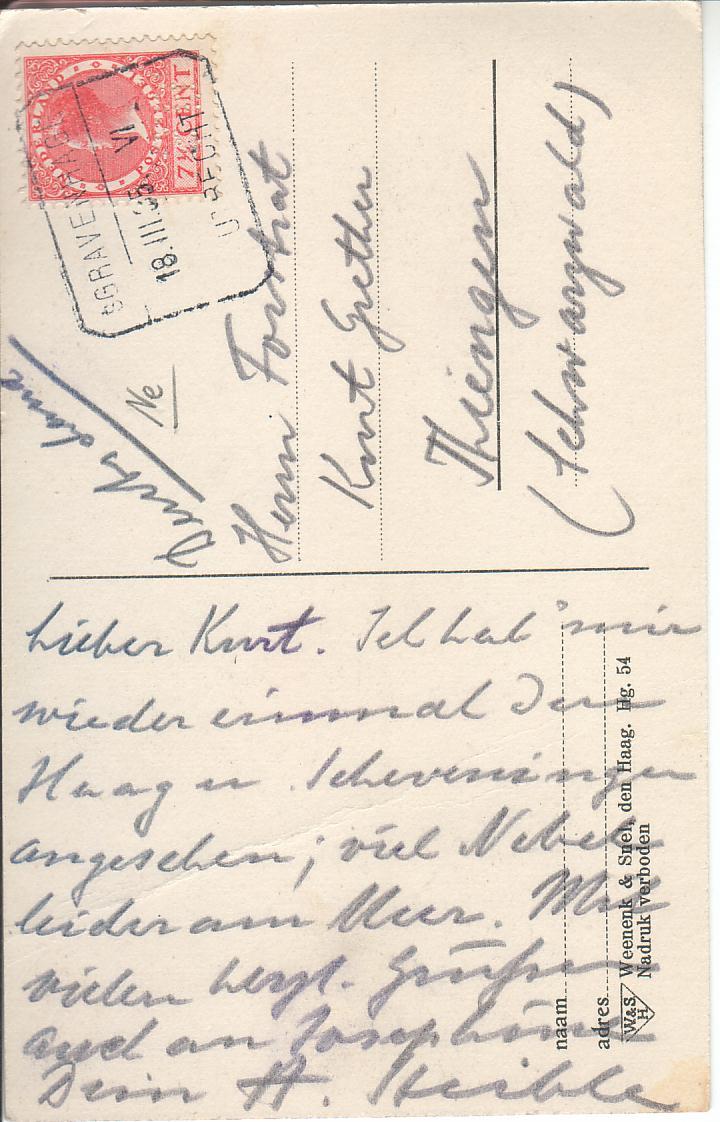 NEDERLAND
POSTZEGEL
7½ CENT
SGRAVENHAGE
18.III.35. VI -
UTRECHT
Deutschland
Ne
Herrn Forstrat
Kurt Grether
Thiengen
(Schwarzwald)
Lieber Kurt. Ich hab' mir
wieder einmal Den
Haag u. Scheveningen
angesehen; viel Nebel
leider am Meer. Mit
vielen herzl. Grüßen
auch an Josephine
Dein H. Heible
naam
adres
W&S
H
Weenenk & Snel, den Haag. Hg. 54
Nadruk verboden